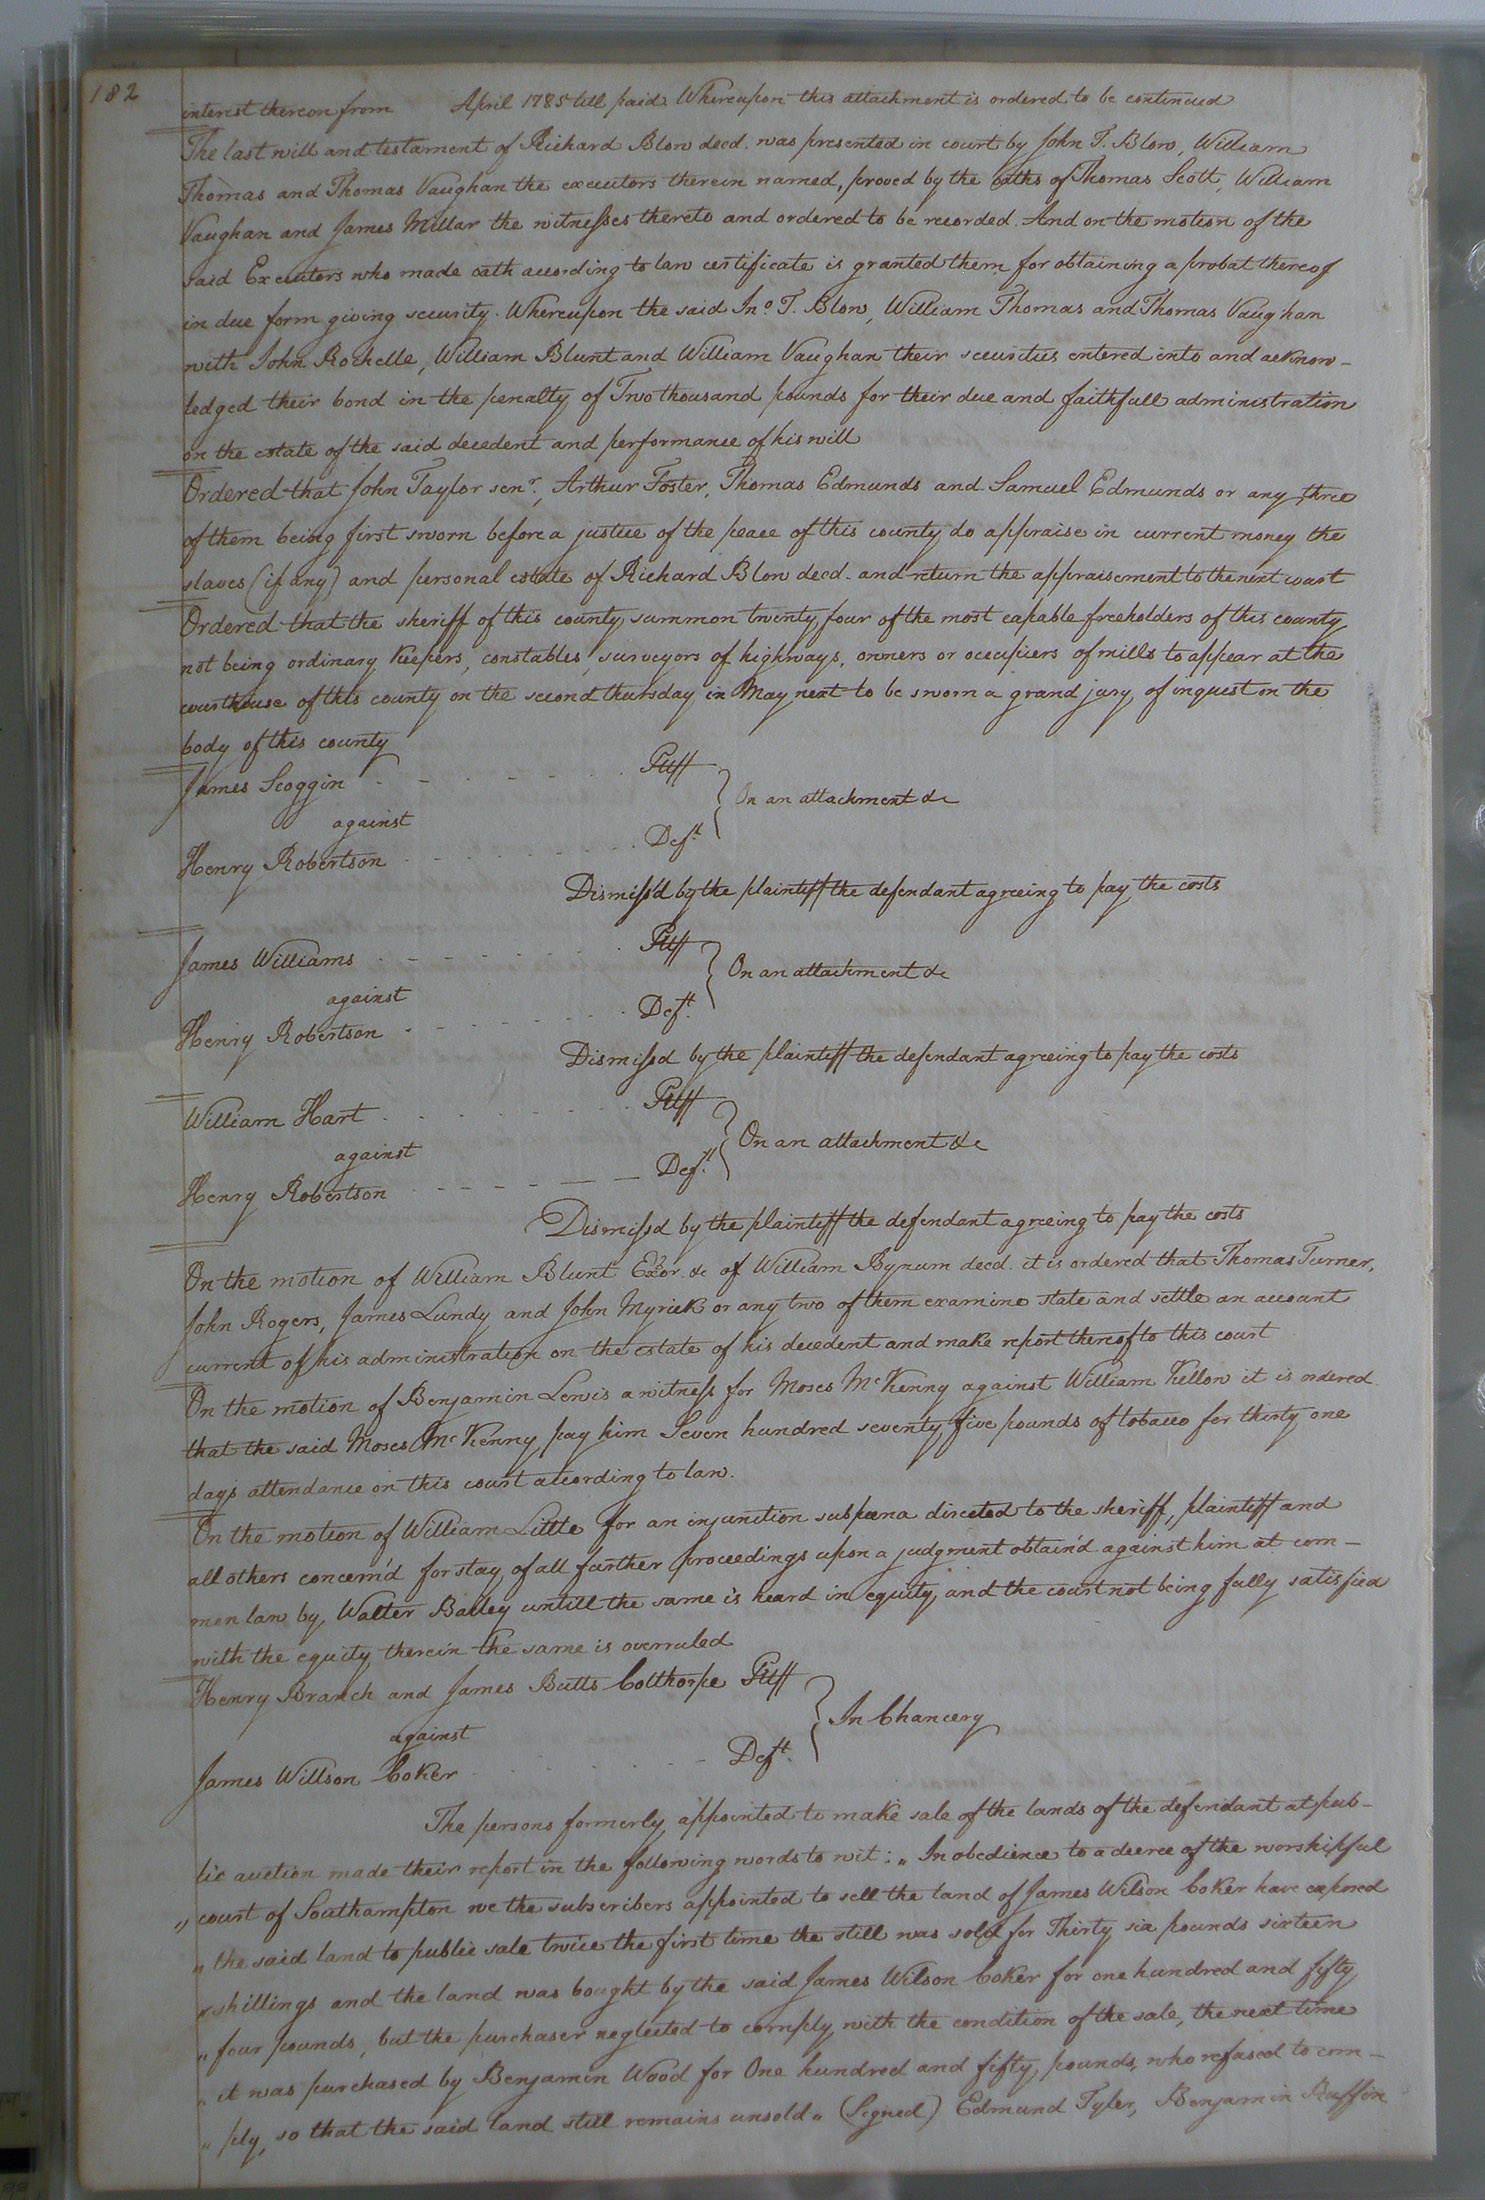 182
interest thereon from April 1785 till paid. Whereupon this attachment is ordered to be continued
The last will and testament of Richard Blow decd. was presented in court by John T. Blow, William
Thomas and Thomas Vaughan the executors therein named, proved by the oaths of Thomas Scott, William
Vaughan and James Millar the witnesses thereto and ordered to be recorded. And on the motion of the
said Executors who made oath according to law certificate is granted them for obtaining a probat thereof
in due form giving security. Whereupon the said Jno. T. Blow, William Thomas and Thomas Vaughan
with John Rochelle, William Blunt and William Vaughan their securities entered into and acknow-
ledged their bond in the penalty of Two thousand pounds for their due and faithfull administration
on the estate of the said decedent and performance of his will
Ordered that John Taylor senr., Arthur Foster, Thomas Edmunds and Samuel Edmunds or any three
of them being first sworn before a justice of the peace of this county do appraise in current money the
slaves (if any) and personal estate of Richard Blow decd. and return the appraisement to the next court
Ordered that the sheriff of this county summon twenty four of the most capable freeholders of this county
not being ordinary keepers, constables, surveyors of highways, owners or occupiers of mills to appear at the
courthouse of this county on the second thursday in May next to be sworn a grand jury of inquest on the
body of this county
James Scoggin - - - - - - - Pltff
On an attachment &c
against
Henry Robertson - - - - - - - Deft.
Dismiss'd by the plaintiff the defendant agreeing to pay the costs
James Williams - - - - - - - Pltff
On an attachment &c
against
Henry Robertson - - - - - - - Deft.
Dismissd by the plaintiff the defendant agreeing to pay the costs
William Hart - - - - - - - Pltff
On an attachment &c
against
Henry Robertson - - - - - - - Deft.
Dismissd by the plaintiff the defendant agreeing to pay the costs
On the motion of William Blunt Exor. &c of William Bynum decd. it is ordered that Thomas Turner,
John Rogers, James Lundy and John Myrick or any two of them examine state and settle an account
current of his administration on the estate of his decedent and make report thereof to this court
On the motion of Benjamin Lewis a witness for Moses McKenny against William Kellow it is ordered
that the said Moses McKenny pay him Seven hundred seventy five pounds of tobacco for thirty one
days attendance on this court according to law.
On the motion of William Little for an injunction subpœna directed to the sheriff, plaintiff and
all others concern'd for stay of all further proceedings upon a judgment obtain'd against him at com-
mon law by Walter Bailey untill the same is heard in equity and the court not being fully satisfied
with the equity therein the same is overruled
Henry Branch and James Butts Colthorpe Pltff
In Chancery
against
James Willson Coker - - - - - - Deft.
The persons formerly appointed to make sale of the lands of the defendant at pub-
lic auction made their report in the following words to wit: „ In obedience to a decree of the worshipful
„ court of Southampton we the subscribers appointed to sell the land of James Wilson Coker have exposed
„ the said land to public sale twice the first time the still was sold for Thirty six pounds sixteen
„ shillings and the land was bought by the said James Wilson Coker for one hundred and fifty
„ four pounds, but the purchaser neglected to comply with the condition of the sale, the next time
„ it was purchased by Benjamin Wood for One hundred and fifty pounds, who refused to com-
„ ply, so that the said land still remains unsold „ (Signed) Edmund Tyler, Benjamin Ruffin